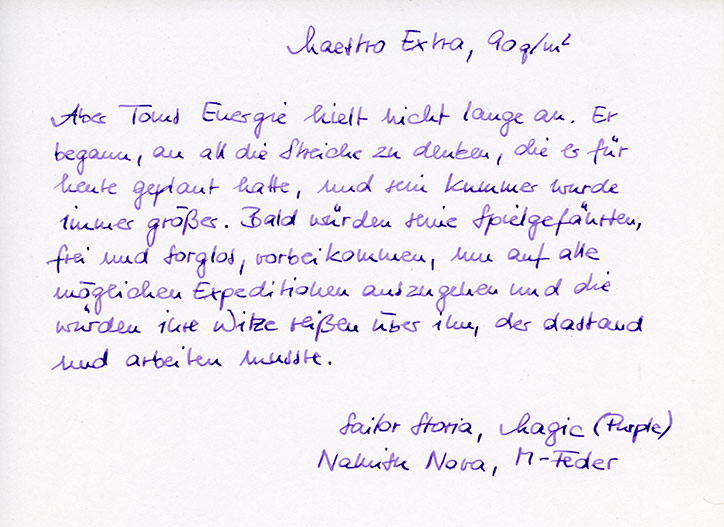 Maestro Extra, 90g/m²
Aber Toms Energie hielt nicht lange an. Er
begann, an all die Streiche zu denken, die er für
heute geplant hatte, und sein Kummer wurde
immer größer. Bald würden seine Spielgefährten,
frei und sorglos, vorbeikommen, um auf alle
möglichen Expeditionen auszugehen und die
würden ihre Witze reißen über ihn, der dastand
und arbeiten musste.
Sailor Storia, Magic (Purple)
Nova, M-Feder